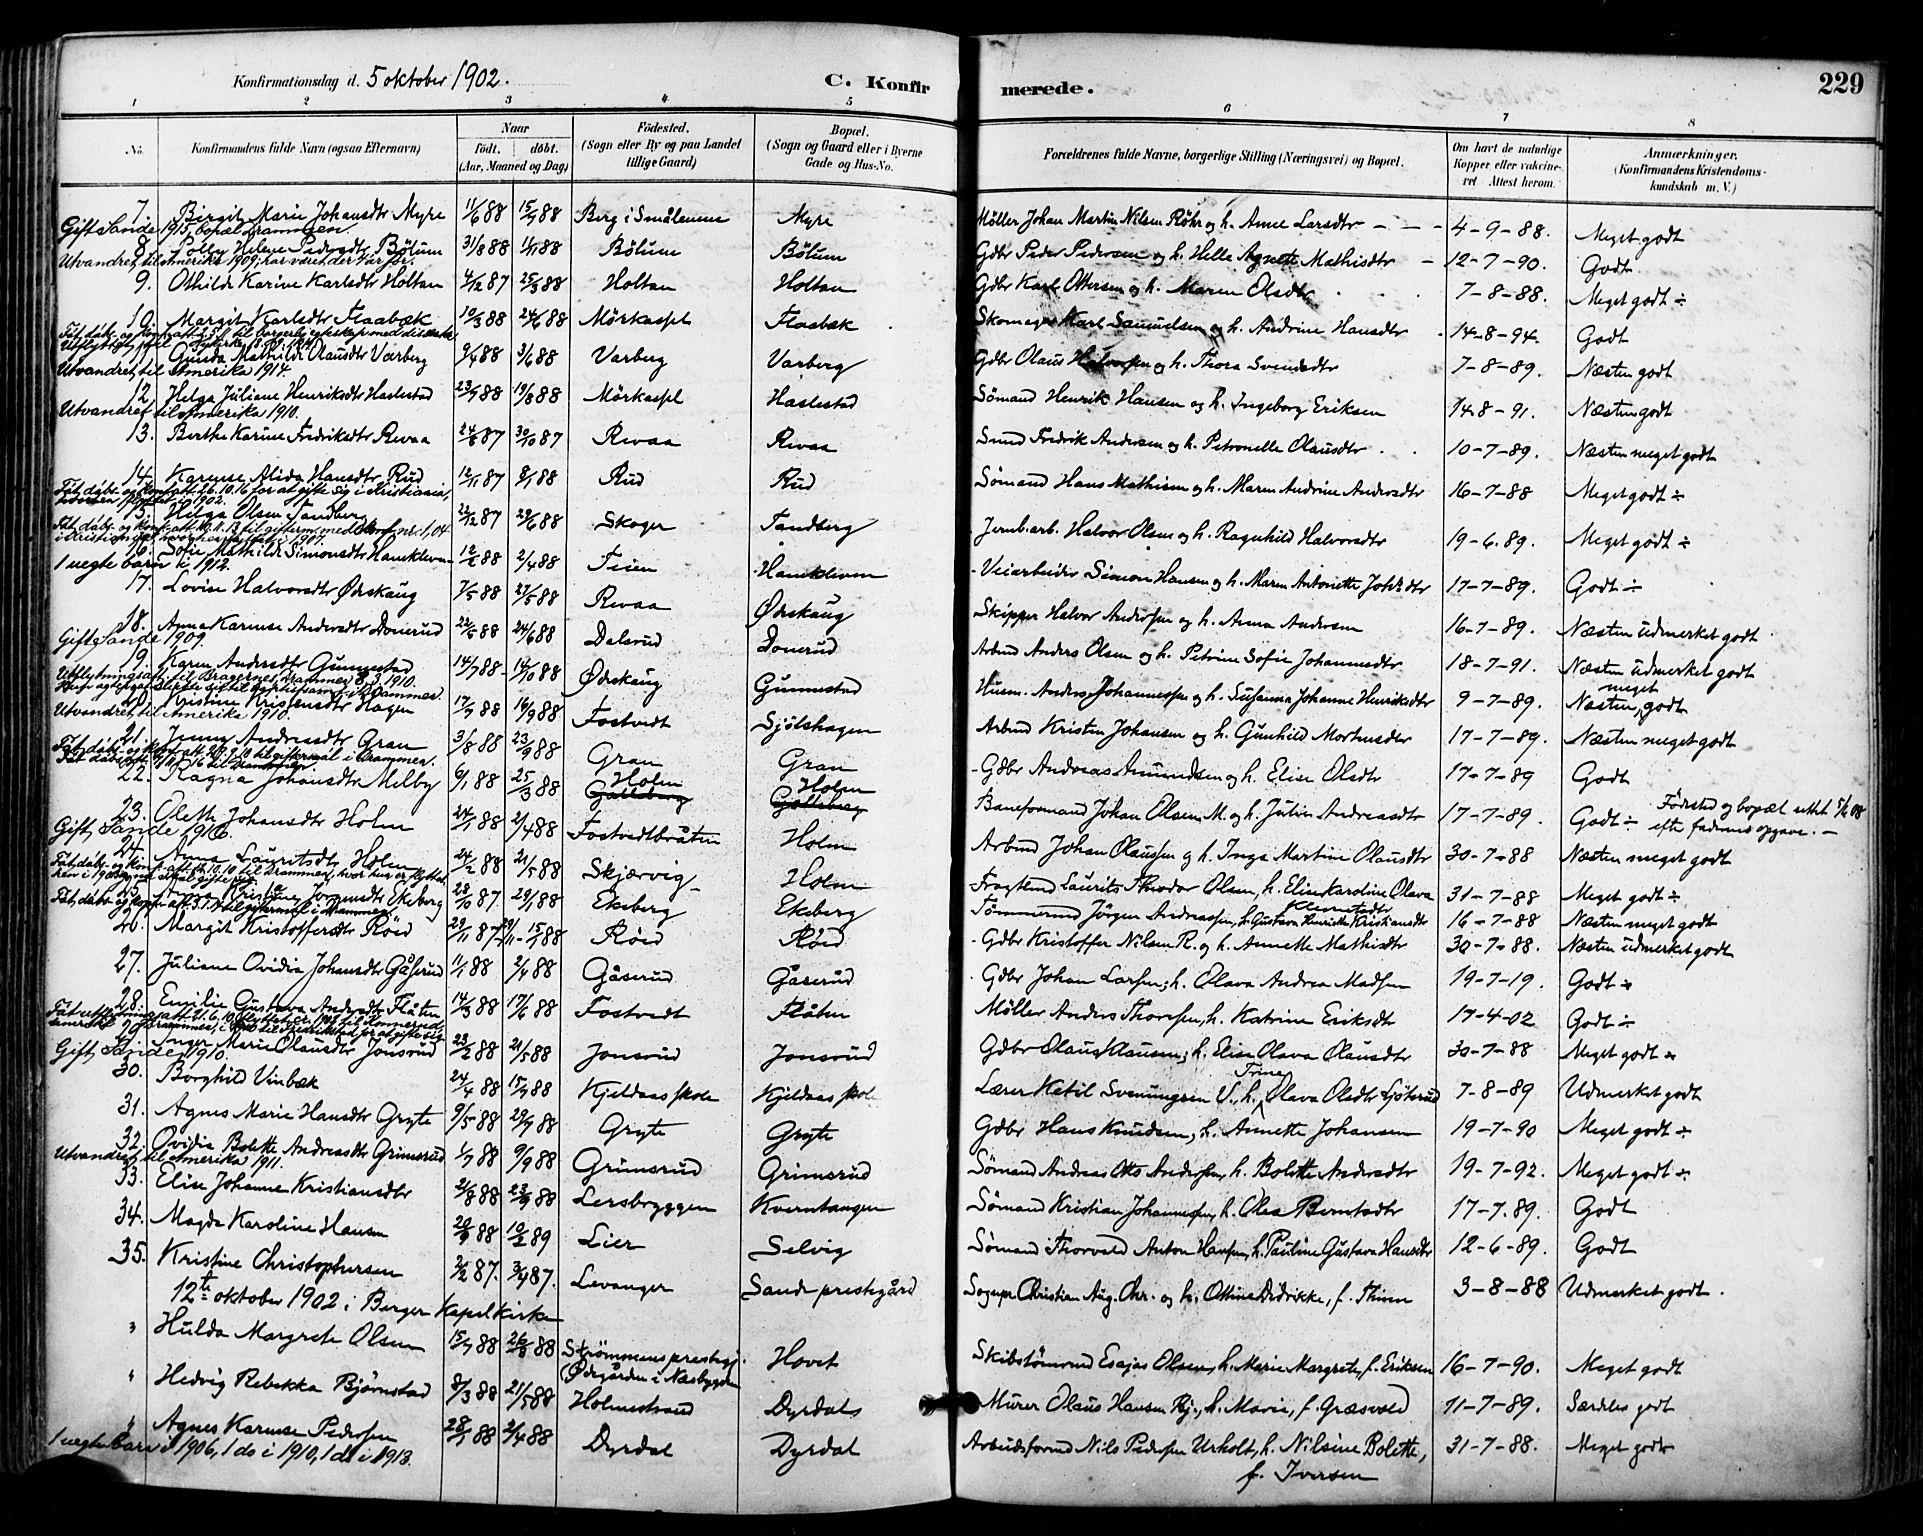 Konfirmationsdag d. 5 oktober 1902.
C. Konfirmerede.
229
1 2 3 4 5 6 7 8
No.
Konfirmandens fulde Navn (ogsaa Efternavn)
Naar
født. døbt.
(Aar, Maaned og Dag)
Fødested.
(Sogn eller By og paa Landet tillige Gaard)
Bopæl.
(Sogn og Gaard eller i Byerne Gade og Hus-No.
Forældrenes fulde Navne, borgerlige Stilling (Næringsvei) og Bopæl.
Om havt de naturlige Kopper eller vakcineret Attest herom.
Anmærkninger.
(Konfirmandens Kristendomskundskab m. V.)
7. Birgit Marie Johansdtr Myre 11/6 88 15/7 88 Berg i Smålenene Myre Møller Johan Martin Nilsen Röhr og h. Anne Larsdtr 4-9-88. Meget godt
Gift Sande 1915, bopæl Drammen.
8. Polly Helene Pedersdtr Bølum 31/8 88 1/11 88 Bølum Bølum Gdbr Peder Pedersen og h. Helle Agnete Mathisdtr 12-7-90. Godt.
Utvandret til Amerika 1909, har været der 4 år før.
9. Othilde Karine Karlsdtr Holtan 4/12 87 25/3 88 Holtan Holtan Gdbr Karl Ottersen og h. Maren Olsdtr 7-8-88. Meget godt ÷
10. Margit Karlsdtr Flaabæk 10/3 88 24/6 88 Mörkaspl Flaabæk Skomager Karl Samuelsen og h. Andrine Hansdtr 14-8-94. Godt
11. Gunda Mathilde Olausdtr Varberg 9/4 88 3/6 88 Varberg Varberg Gdbr Olaus Halvorsen og h. Thora Svendsdtr 7-8-89. Næsten godt
Utvandret til Amerika 1914.
12. Helga Juliane Henriksdtr Haslestad 23/7 88 19/8 88 Mörkaspl Haslestad Sömand Henrik Hansen og h. Ingeborg Eriksen 14-8-91. Næsten godt
Utvandret til Amerika 1910.
13. Berthe Karine Fredriksdtr Revaa 24/8 87 30/10 87 Revaa Revaa Smed Fredrik Andersen og h. Petronelle Olausdtr 10-7-89. Næsten meget godt
14. Karense Alida Hansdtr Rud 12/11 87 8/1 88 Rud Rud Sömand Hans Mathisen og h. Maren Andrine Andersdtr 16-7-88 Meget godt ÷
Fåt dåbs- og konf.att. 26.10.16 for at gifte sig i Kristiania,
15. Helga Olsen Sandberg 22/12 87 29/6 88 Skoger Sandberg Jernb.arb. Halvor Olsen og h. Ragnhild Halvorsdtr 19-6.89. Meget godt ÷
16. Sofie Mathilde Simonsdtr Hanekleven 12/2 88 2/4 88 Teien Hanekleven Veiarbeider Simon Hansen og h. Maren Antonette Johsdtr 17-7-89. Godt ÷
1 uegte barn i 1912.
17. Lovise Halvorsdtr Ødskaug 7/5 88 27/5 88 Revaa Ødskaug Skipper Halvor Andersen og h. Anna Andersen 16-7-89. Næsten udmerket godt
18. Anna Karense Andersdtr Donerud 22/5 88 24/6 88 Dalsrud Donerud Arbmd Anders Olsen og h. Petrine Sofie Johannesdtr 18-7-91. Næsten udmerket godt
Gift Sande 1909.
19. Karen Andersdtr Gunnestad 14/7 88 14/10 88 Ødskaug Gunnestad Husm. Anders Johannessen og h. Susanna Johanne Henriksdtr 9-7-89. Næsten meget godt
Utflytningsatt. til Bragernes, Drammen 8.3.1910.
20. Kristine Kristensdtr Hagen 17/7 88 16/9 88 Fostvedt Sjølshagen Arbmd Kristen Johansen og h. Gunhild Morthensdtr 17-7-89. Næsten meget godt
Utvandret til Amerika 1910.
21. Jenny Andreasdtr Gran 3/8 88 23/9 88 Gran Gran Gdbr Andreas Amundsen og h. Elise Olsdtr 17-7-89 Godt
22. Ragna Johansdtr Melby 6/1 88 25/3 88 Holm Galleberg Holm Galleberg Baneformand Johan Olsen M. og h. Julie Andreasdtr 17-7-89. Godt ÷ Födested og bopæl rettet efter faderens opgave.
23. Oleth Johansdtr Holm 24/1 88 2/4 88 Fostvedtbråten Holm Arbmd Johan Olaussen og h. Inga Martine Olausdtr 30-7-88 Næsten meget godt
Gift, Sande 1916.
24. Anna Lauritsdtr Holm 24/2 88 21/5 88 Skjærvig Holm Fragtemd Laurits Theodor Olsen, h. Elise Karoline Olava 31-7-88 Meget godt ÷
25. Anna Jörgensdtr Ekeberg 28/10 87. 29/1 88 Ekeberg Ekeberg Tömmermd Jörgen Andreassen, h. Gustava Henrikke Kristiansdtr 16-7-88 Næsten meget godt
26. Margit Kristoffersdtr Röed 29/11 87 15/1 88 Röed Röed Gdbr Kristoffer Nilsen R. og h. Annette Mathisdtr 30-7-88. Næsten udmerket godt
27. Juliane Ovidia Johansdtr Gåserud 11/1 88 2/4 88 Gåserud Gåserud Gdbr Johan Larsen, h. Olava Andrea Madsen 19-7-19. Godt ÷
28. Emilie Gustava Andersdtr Flåten 14/3 88 17/6 88 Fostvedt Flåten Møller Anders Thoresen, h. Katrine Eriksdtr 17-4-02 Godt ÷
29. Inger Marie Olausdtr Jonsrud 23/2 88 21/5 88 Jonsrud Jonsrud Gdbr Olaus Klausen, h. Elise Olava Olausdtr 30-7-88 Meget godt ÷
Gift, Sande 1910.
30. Borghild Vinbæk 24/4 88 15/7 88 Kjeldaas skole Kjeldaas skole Lærer Ketil Svenungsen V., h. Trine Olava Olsdtr Sjöterud 7-8-89 Udmerket godt
31. Agnes Marie Hansdtr Gryte 9/5 88 29/7 88 Gryte Gryte Gdbr Hans Knudsen, h. Annette Johansen 19-7-90 Meget godt ÷
32. Ovidia Bolette Andreasdtr Grimsrud 1/7 88 9/9 88 Grimsrud Grimsrud Sömand Andreas Otto Andersen, h. Bolette Andersdtr 19-7-92. Meget godt ÷
Utvandret til Amerika 1911.
33. Elise Johanne Kristiansdtr 21/8 88 23/9 88 Lersbryggen Kverntangen Sömand Kristian Johannessen, h. Olea Berntsdtr 17-7.89. Godt
34. Magda Karoline Hansen 20/9 88 10/2 89 Lier Selvig Sömand Thorvald Anton Hansen, h. Pauline Gustava Hansdtr 12-6-89. Godt
35. Kristine Christophersen 2/2 87. 3/4 87. Levanger Sande prestegård Sognpr. Christian Aug. Chr. og h. Ottine Didrikke, f. Thinn 3-8-88 Udmerket godt.
12te oktober 1902 i Berger Kapelkirke
" Hulda Margrete Olsen 15/7 88 26/8 88 Strömmens prestegj. (Ødegården i Næsbygden Hovet Skibstömmrmd Esajas Olsen, h. Marie Margrete, f. Eriksen 16-7-90. Meget godt
" Hedvig Rebekka Bjørnstad 8/3 88 21/5 88 Holmestrand Dyrdal Murer Olaus Hansen Bj., h. Marie, f. Græsvold 11-7-89. Særdeles godt
" Agnes Karense Pedersen 28/1 88 2/4 88 Dyrdal Dyrdal Arbeidsformd Nils Pedersen Urholt, h. Nilsine Bolette, f. Iversen 31-7-88. Meget godt
1 uegte barn i 1906, 1 do i 1910, 1 do i 1913.